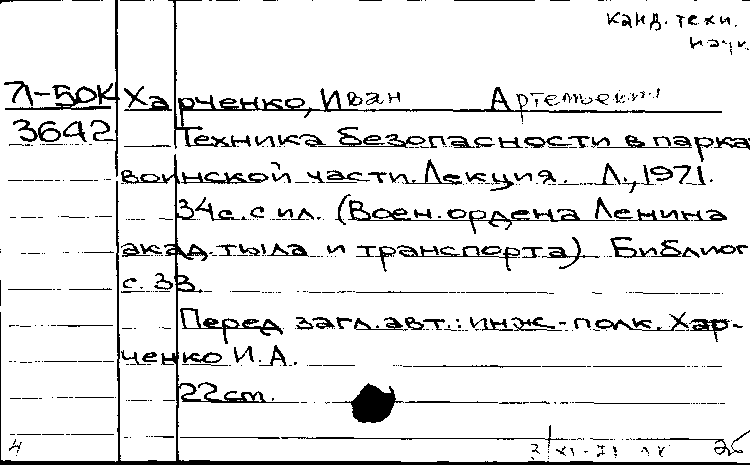 канд. техн.
наук
Л-50К Харченко, Иван Артемьевич
3642 Техника безопасности в парка
воинской части. Лекция. Л., 1971.
34с. с ил. (Воен. ордена Ленина
акад. тыла и транспорта) Библиог
с. 33.
Перед загл. авт.: инж.-полк. Хар-
ченко И.А.
22 см.
4